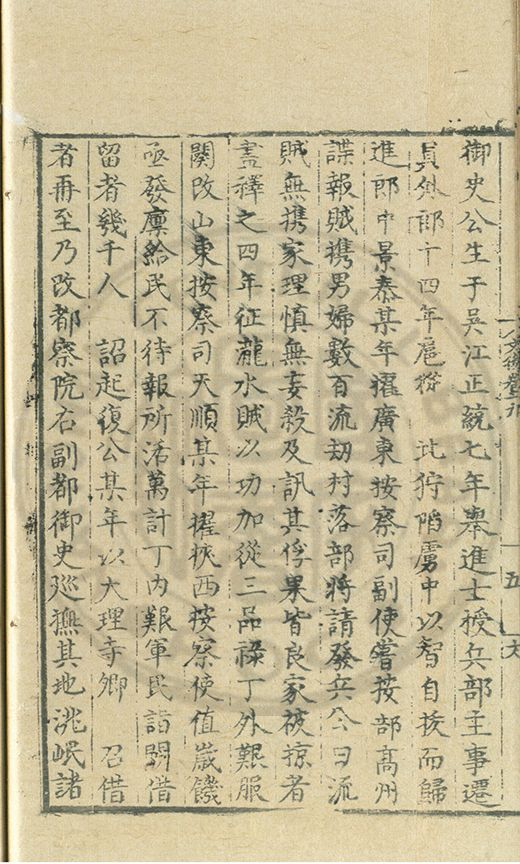 御史公生于吳江正統七年舉進士授兵部主事遷
員外郎十四年扈從 北狩陷虜中以智自拔而歸
進郎中景泰某年擢廣東按察司副使嘗按部高州
諜報賊攜男婦數百流刼村落部將請發兵公曰流
賊無攜家理慎無妄殺及訊其俘果皆良家被掠者
盡釋之四年征瀧水賊以功加從三品祿丁外艱服
闋改山東按察司天順某年擢陝西按察使值歲饑
亟發廩給民不待報所活萬計丁內艱軍民詣闕借
留者幾千人 詔起復公某年以大理寺卿 召借
者再至乃改都察院右副都御史廵撫其地洮岷諸